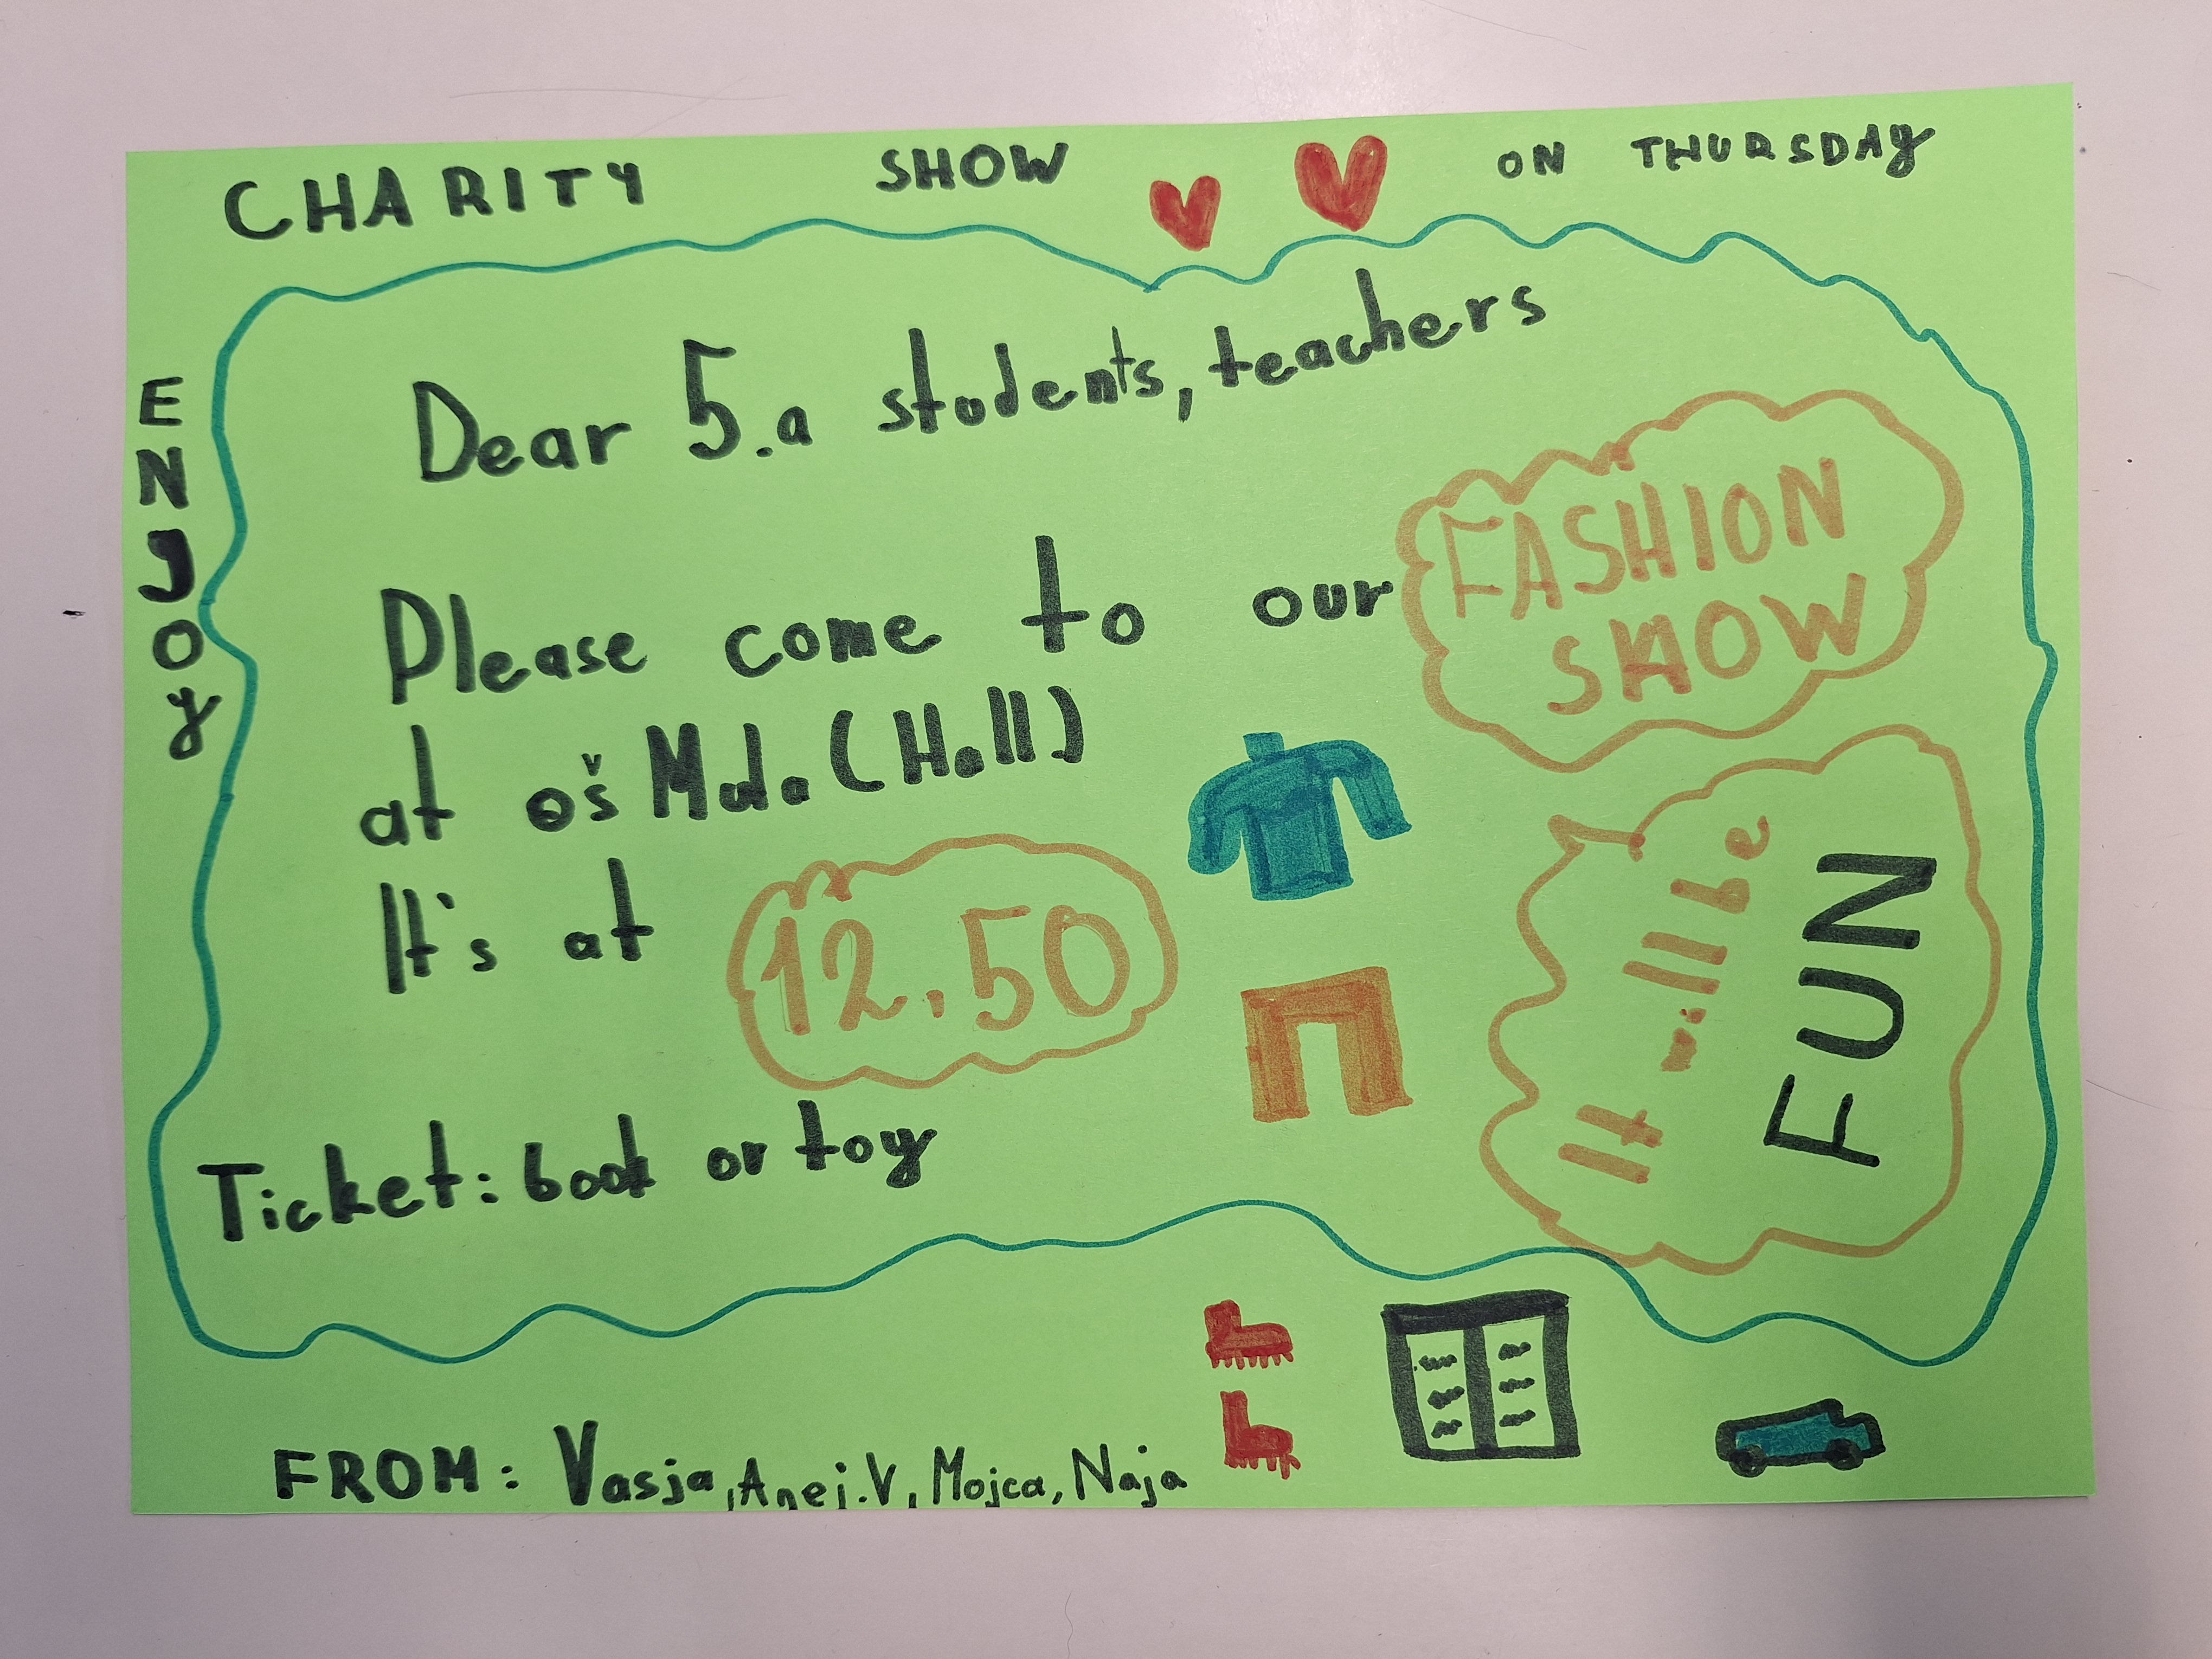 CHARITY SHOW ON THURSDAY
ENJOY
Dear 5.a students, teachers
Please come to our FASHION SHOW
at oš Muta (Hall)
It's at 12.50
It will be FUN
Ticket: book or toy
FROM: Vasja, Anej.V, Mojca, Naja